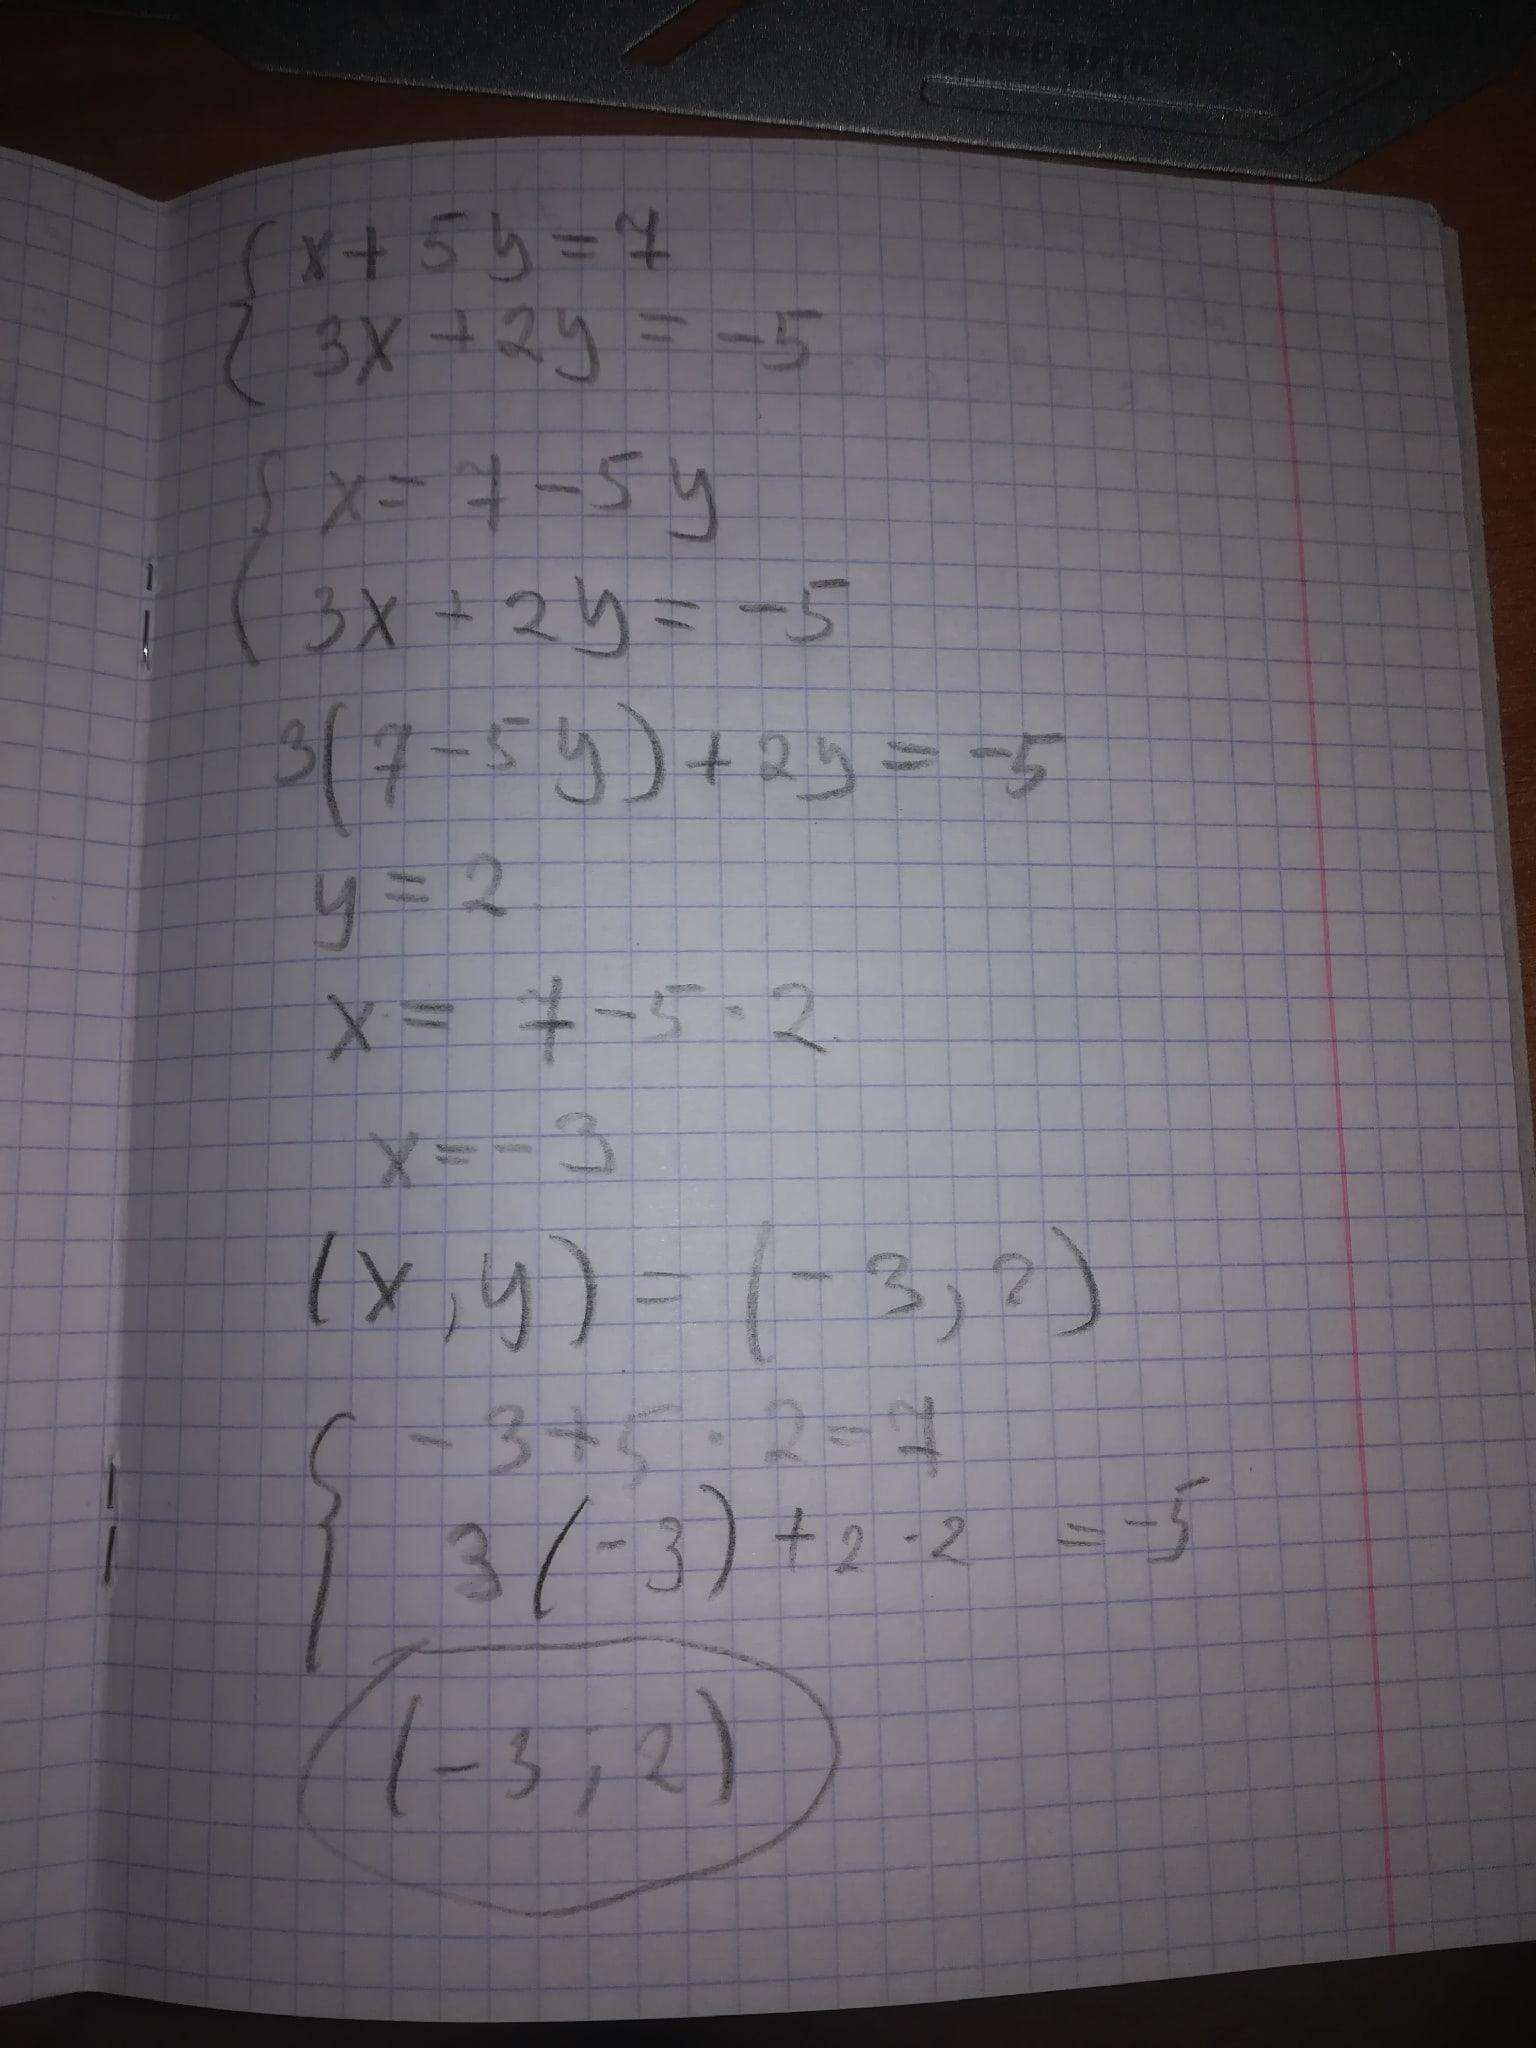 INFRARED OPTIC SMART
{ x + 5y = 7
3x + 2y = -5
{ x = 7 - 5y
3x + 2y = -5
3(7 - 5y) + 2y = -5
y = 2
x = 7 - 5 · 2
x = -3
(x, y) = (-3, 2)
{ -3 + 5 · 2 = 7
3(-3) + 2 · 2 = -5
(-3; 2)